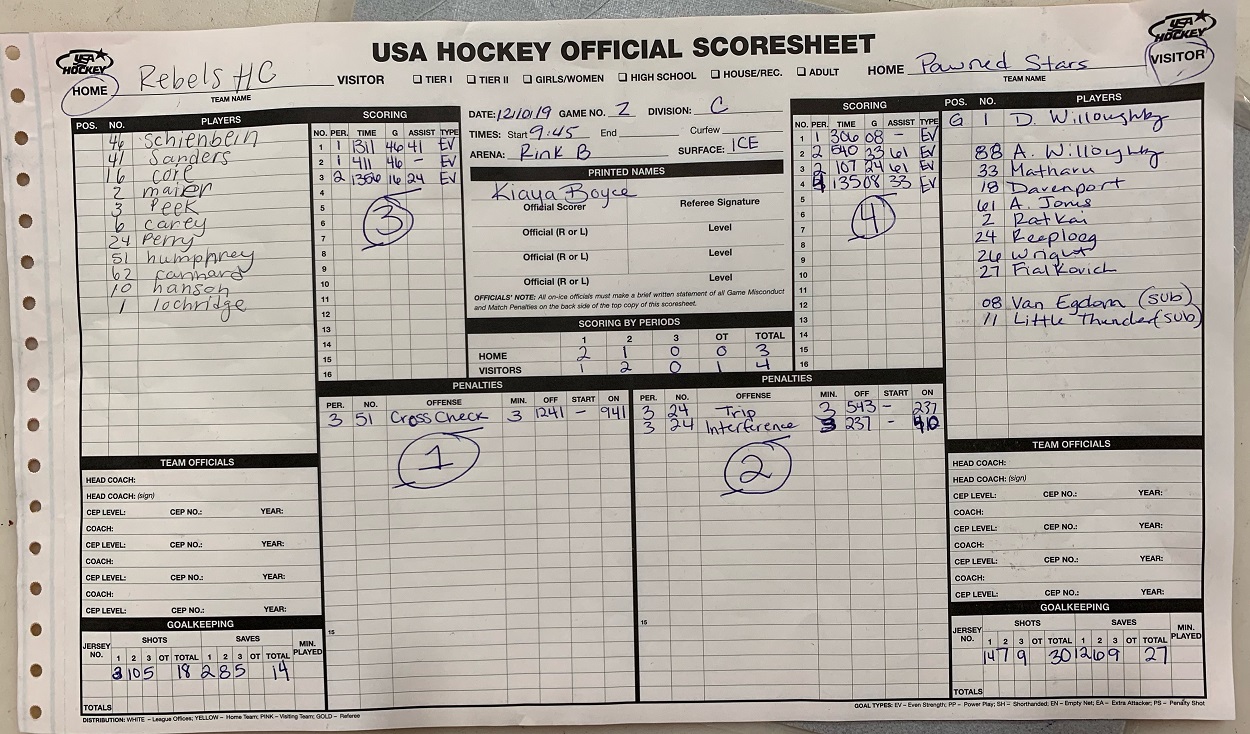 USA HOCKEY OFFICIAL SCORESHEET
USA HOCKEY
HOME Rebels HC VISITOR
TEAM NAME
☐ TIER I ☐ TIER II ☐ GIRLS/WOMEN ☐ HIGH SCHOOL ☐ HOUSE/REC. ☐ ADULT
USA HOCKEY
HOME Pawned Stars VISITOR
TEAM NAME
POS. NO. PLAYERS
46 Schienbein
41 Sanders
16 core
2 maier
3 Peek
6 carey
24 Perry
51 humphrey
62
10 hanson
1 lochridge
SCORING
NO. PER. TIME G ASSIST TYPE
1 1 1311 46 41 EV
2 1 411 46 - EV
3 2 1356 16 24 EV
4
5
6
7
8
9
10
11
12
13
14
15
16
3
DATE: 12/10/19 GAME NO. 2 DIVISION: C
TIMES: Start 9:45 End Curfew
ARENA: Rink B SURFACE: ICE
PRINTED NAMES
Kiaya Boyce
Official Scorer Referee Signature
Official (R or L) Level
Official (R or L) Level
Official (R or L) Level
OFFICIALS' NOTE: All on-ice officials must make a brief written statement of all Game Misconduct
and Match Penalties on the back side of the top copy of this scoresheet.
SCORING BY PERIODS
1 2 3 OT TOTAL
HOME 2 1 0 0 3
VISITORS 1 2 0 1 4
SCORING
NO. PER. TIME G ASSIST TYPE
1 1 306 08 - EV
2 2 540 33 61 EV
3 2 107 24 61 EV
4 135 08 33 EV
5
6
7
8
9
10
11
12
13
14
15
16
4
POS. NO. PLAYERS
G 1 D. Willoughby
88 A. Willoughby
33 Matharu
18 Davenport
61 A. Jones
2 Ratkai
24 Reeploeg
26 Wright
27 Fialkovich
08 Van Egdom (sub)
11 Little Thunder (sub)
PENALTIES
PER. NO. OFFENSE MIN. OFF START ON
3 51 Cross Check 3 1241 - 941
1
15
PENALTIES
PER. NO. OFFENSE MIN. OFF START ON
3 24 Trip 3 543 - 237
3 24 Interference 3 237 -
2
15
TEAM OFFICIALS
HEAD COACH:
HEAD COACH: (sign)
CEP LEVEL: CEP NO.: YEAR:
COACH:
CEP LEVEL: CEP NO.: YEAR:
COACH:
CEP LEVEL: CEP NO.: YEAR:
COACH:
CEP LEVEL: CEP NO.: YEAR:
GOALKEEPING
JERSEY NO. SHOTS SAVES MIN. PLAYED
1 2 3 OT TOTAL 1 2 3 OT TOTAL
3 10 5 18 2 8 5 14
TOTALS
TEAM OFFICIALS
HEAD COACH:
HEAD COACH: (sign)
CEP LEVEL: CEP NO.: YEAR:
COACH:
CEP LEVEL: CEP NO.: YEAR:
COACH:
CEP LEVEL: CEP NO.: YEAR:
COACH:
CEP LEVEL: CEP NO.: YEAR:
GOALKEEPING
JERSEY NO. SHOTS SAVES MIN. PLAYED
1 2 3 OT TOTAL 1 2 3 OT TOTAL
14 7 9 30 12 6 9 27
TOTALS
DISTRIBUTION: WHITE – League Offices; YELLOW – Home Team; PINK – Visiting Team; GOLD – Referee
GOAL TYPES: EV – Even Strength; PP – Power Play; SH – Shorthanded; EN – Empty Net; EA – Extra Attacker; PS – Penalty Shot